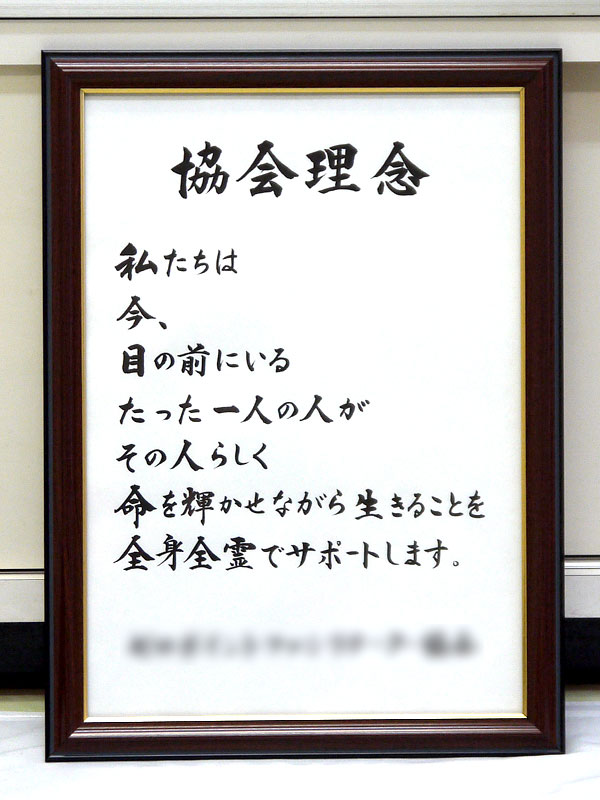 協会理念
私たちは
今、
目の前にいる
たった一人の人が
その人らしく
命を輝かせながら生きることを
全身全霊でサポートします。